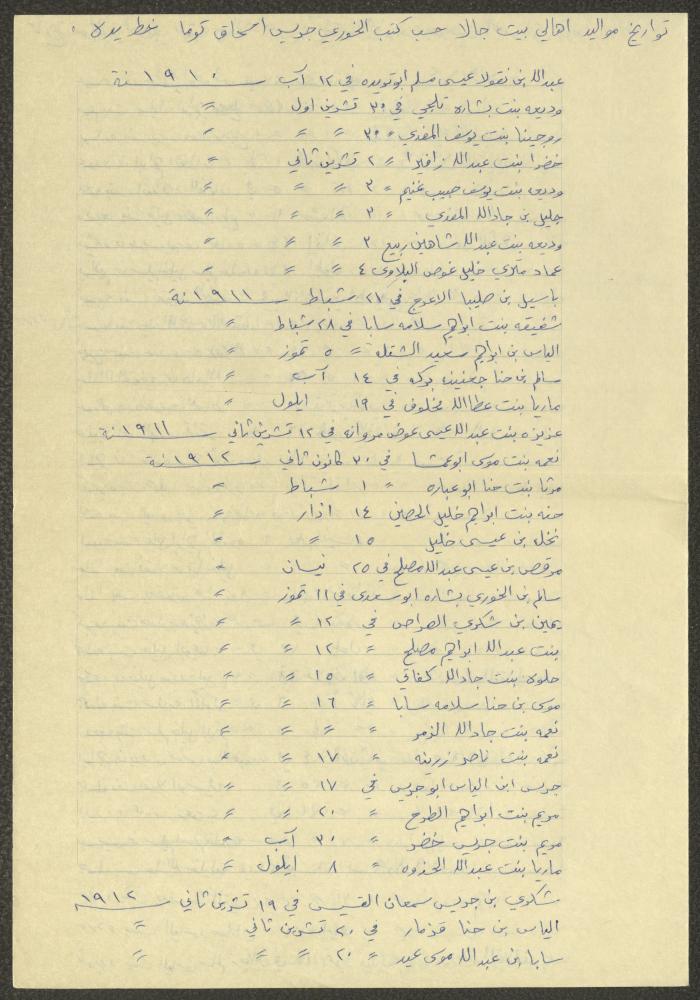 تواريخ مواليد اهالي بيت جالا حسب كتب الخوري جريس اسحاق توما بخط يده
عبدالله بن نقولا عيسى مسلم ابو تويده في ١٢ آب سنة ١٩١٠
وديعه بنت بشاره تلجي في ٣٠ تشرين اول 〃
روجينا بنت يوسف المفدي 〃 ٣٠ 〃 〃 〃
خضرا بنت عبدالله زافيرا 〃 ٢ تشرين ثاني 〃
وديعه بنت يوسف حبيب غنيم 〃 ٣ 〃 〃 〃
جليل بن جادالله المفدي 〃 ٣ 〃 〃 〃
وديعه بنت عبدالله شاهين ربيع ٣ 〃 〃 〃
عماد متري خليل عوض البلاوي ٤ 〃 〃 〃
باسيل بن صليبا الاعرج في ٢١ شباط سنة ١٩١١
شفيقه بنت ابراهيم سلامه سابا في ٢٨ شباط 〃
الياس بن ابراهيم سعيد الشتله 〃 ٥ تموز 〃
سالم بن حنا جعنينه بركه في ١٤ آب 〃
ماريا بنت عطاالله مخلوف في ١٩ ايلول 〃
عزيزه بنت عبدالله عيسى عوض مروانه في ١٢ تشرين ثاني سنة ١٩١١
نعمه بنت موسى ابو عمشا في ٣٠ كانون ثاني سنة ١٩١٢
مرتا بنت حنا ابو عباره 〃 ١ شباط 〃
حنه بنت ابراهيم خليل الحصين ١٤ اذار 〃
نخله بن عيسى خليل ١٥ 〃 〃
مرقص بن عيسى عبدالله مصلح في ٢٥ نيسان 〃
سالم بن الخوري بشاره ابو سعدى في ١١ تموز 〃
يمين بن شكري الصراص في ١٢ 〃 〃
بنت عبدالله ابراهيم مصلح 〃 ١٢ 〃 〃
حلوه بنت جادالله كفاتي 〃 ١٥ 〃 〃
موسى بن حنا سلامه سابا 〃 ١٦ 〃 〃
نعمه بنت جادالله الزمر 〃 〃 〃 〃
نعمه بنت ناصر زرينه 〃 ١٧ 〃 〃
جريس ابن الياس ابو جريس في ١٧ 〃 〃
مريم بنت ابراهيم الطرح 〃 ٢٠ 〃 〃
مريم بنت جريس خضر 〃 ٣٠ آب 〃
ماريا بنت عبدالله الحذوه 〃 ٨ ايلول 〃
شكري بن جريس سمعان القسيس في ١٩ تشرين ثاني سنة ١٩١٢
الياس بن حنا قزمار في ٢٠ تشرين ثاني 〃
سابا بن عبدالله موسى عيد 〃 ٢٠ 〃 〃 〃